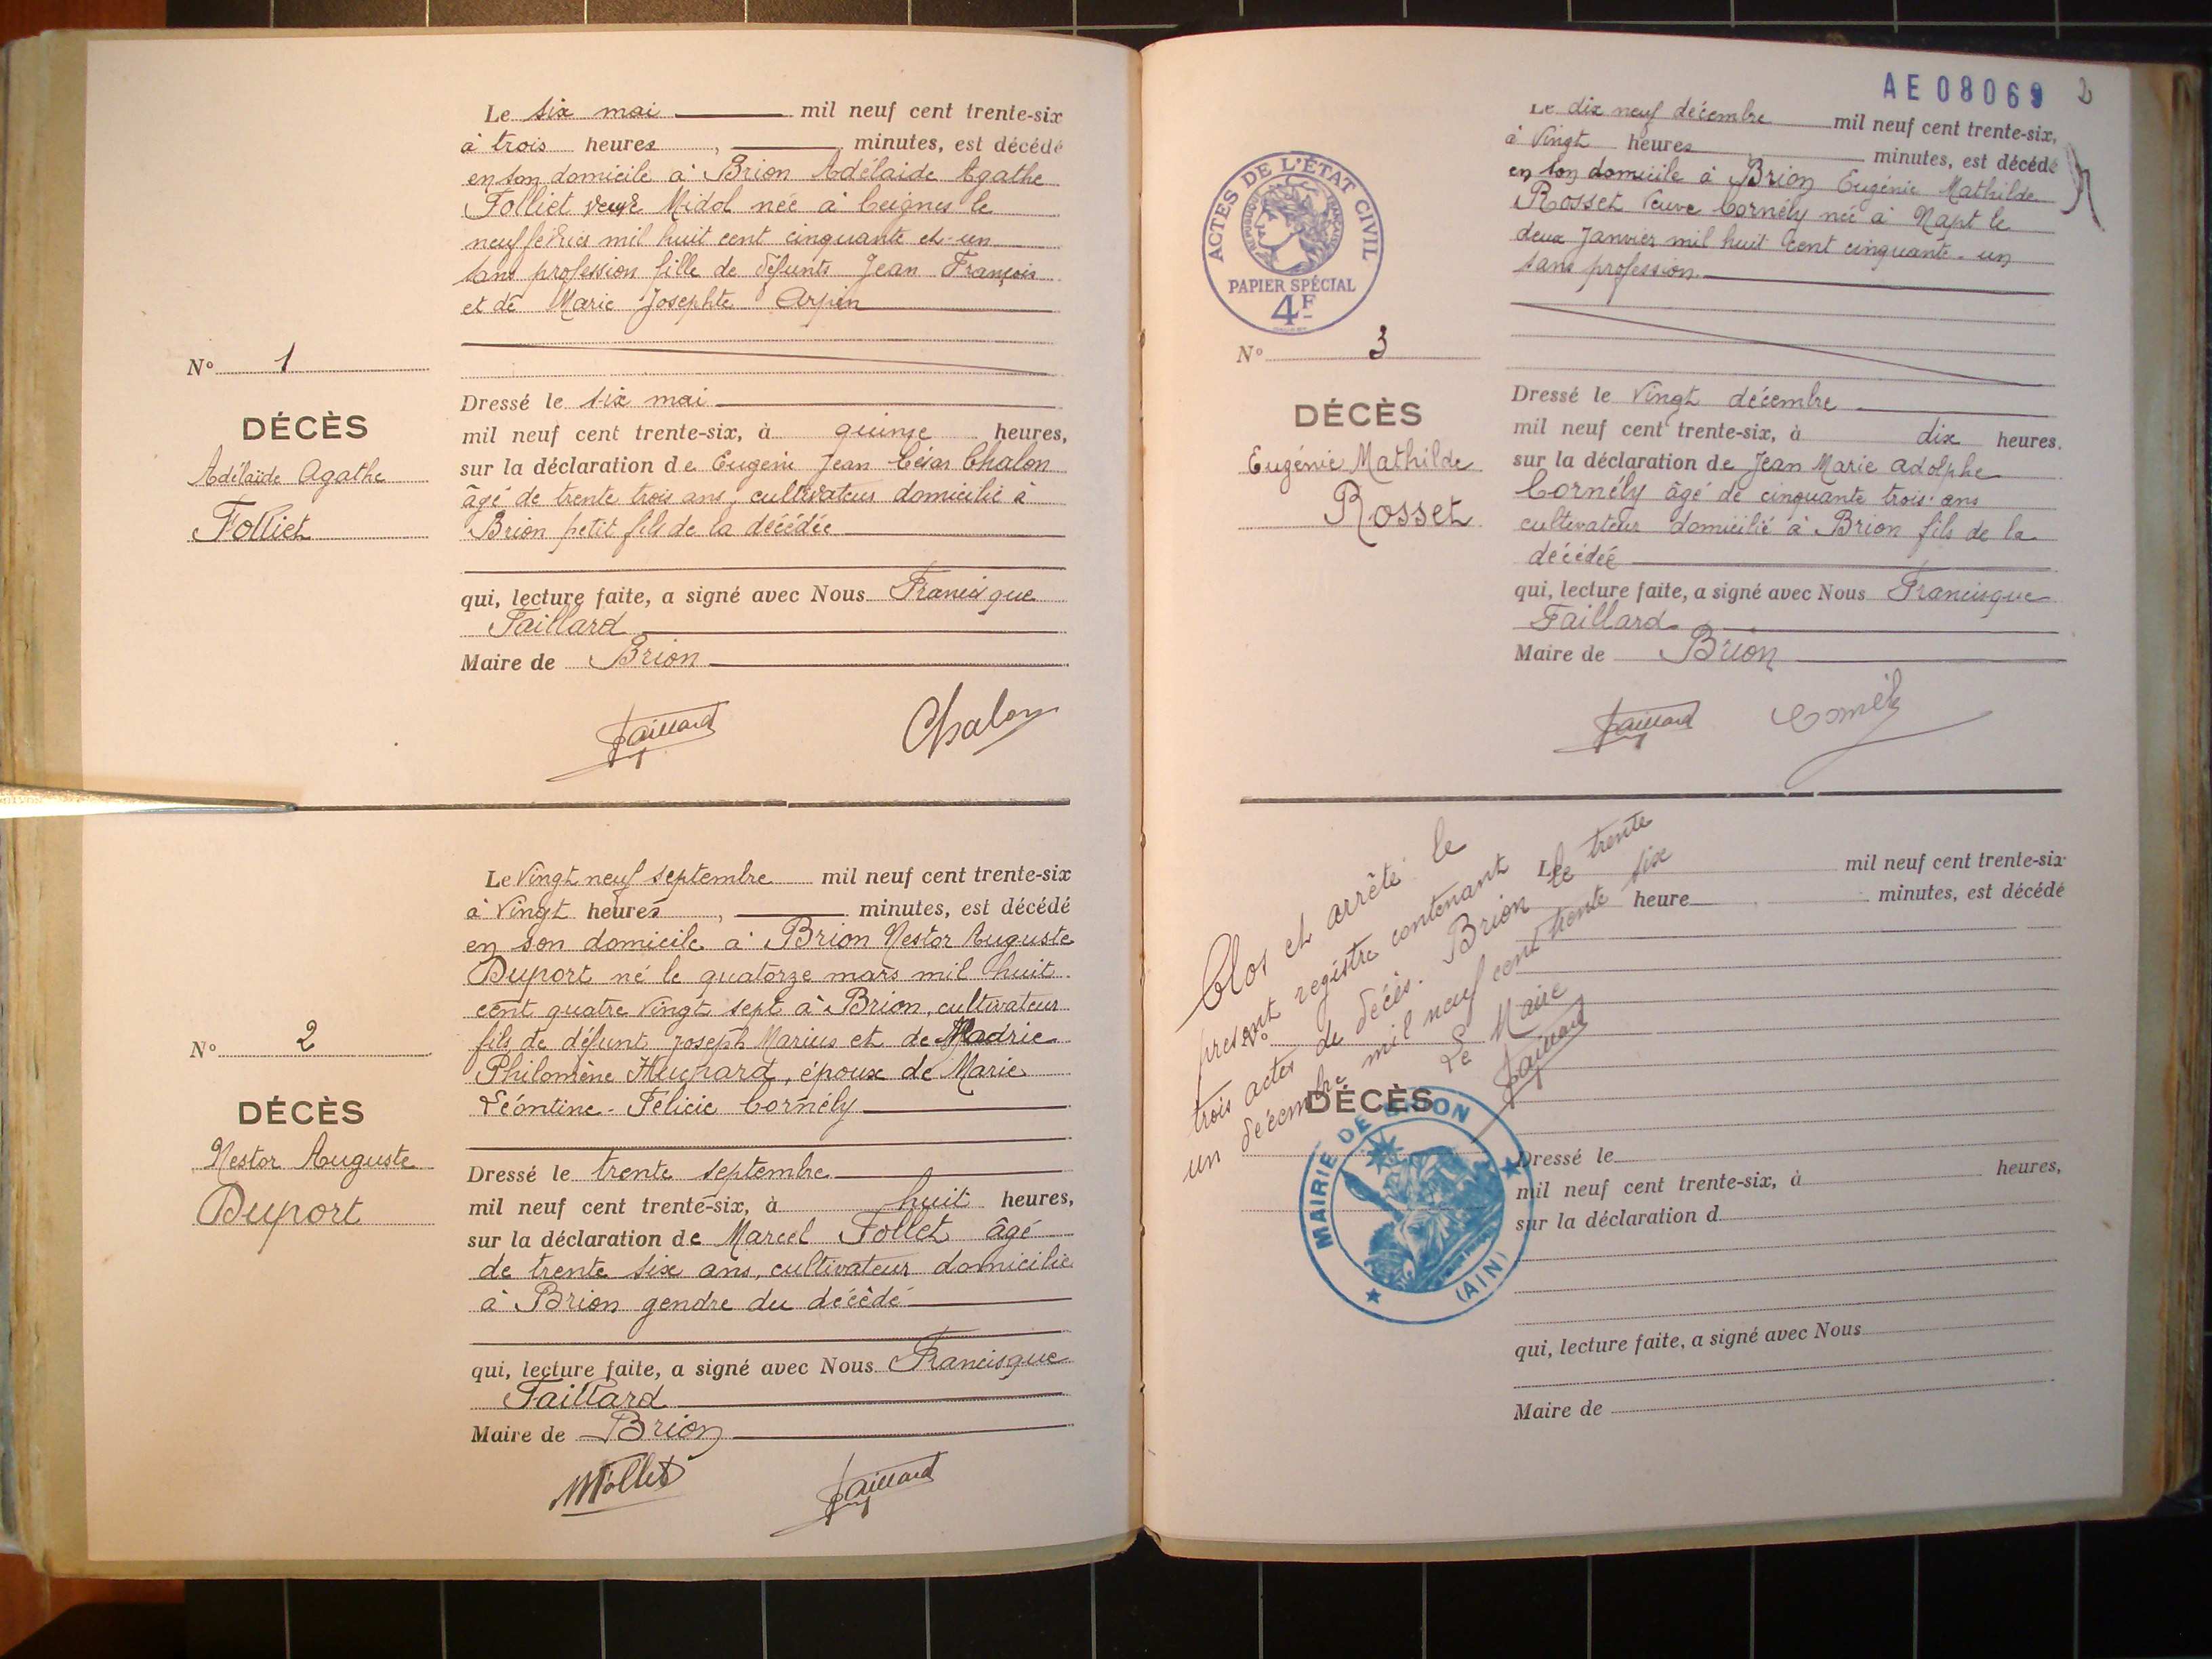 Le six mai mil neuf cent trente-six
à trois heures, minutes, est décédé
en son domicile à Brion Adélaide Agathe
Folliet veuve Midol née à Ceignes le
neuf février mil huit cent cinquante et un
sans profession fille de défunts Jean François
et de Marie Josephte Arpin
N° 1
DÉCÈS
Adélaïde Agathe
Folliet
Dressé le six mai
mil neuf cent trente-six, à quinze heures,
sur la déclaration de Eugène Jean César Chalon
âgé de trente trois ans, cultivateur domicilié à
Brion petit fils de la décédée
qui, lecture faite, a signé avec Nous Francisque
Faillard
Maire de Brion
Faillard Chalon
Le Vingt neuf septembre mil neuf cent trente-six
à Vingt heures, minutes, est décédé
en son domicile à Brion Nestor Auguste
Duport né le quatorze mars mil huit
cent quatre Vingt sept à Brion, cultivateur
fils de défunt Joseph Marius et de Marie
Philomène Huchard, époux de Marie
Léontine-Félicie Cornély
N° 2
DÉCÈS
Nestor Auguste
Duport
Dressé le trente septembre
mil neuf cent trente-six, à huit heures,
sur la déclaration de Marcel Follet âgé
de trente six ans, cultivateur domicilié
à Brion gendre du décédé
qui, lecture faite, a signé avec Nous Francisque
Faillard
Maire de Brion
MFollet Faillard
AE 08069 2
Le dix neuf décembre mil neuf cent trente-six,
à Vingt heures minutes, est décédé
en son domicile à Brion Eugénie Mathilde
Rosset Veuve Cornély née à Napt le
deux Janvier mil huit Cent cinquante-un
sans profession.
ACTES DE L'ÉTAT CIVIL
RÉPUBLIQUE FRANÇAISE
PAPIER SPÉCIAL
4F
N° 3
DÉCÈS
Eugénie Mathilde
Rosset
Dressé le Vingt décembre
mil neuf cent trente-six, à dix heures.
sur la déclaration de Jean Marie Adolphe
Cornély âgé de cinquante trois ans
cultivateur domicilié à Brion fils de la
décédée
qui, lecture faite, a signé avec Nous Francisque
Faillard
Maire de Brion
Faillard Cornély
Clos et arrêté le
présent registre contenant
trois actes de décès. Brion le trente
un décembre mil neuf cent trente six
Le Maire
Faillard
Le mil neuf cent trente-six
heure minutes, est décédé
N°
DÉCÈS
MAIRIE DE BRION
(AIN)
Dressé le
mil neuf cent trente-six, à heures,
sur la déclaration d
qui, lecture faite, a signé avec Nous
Maire de